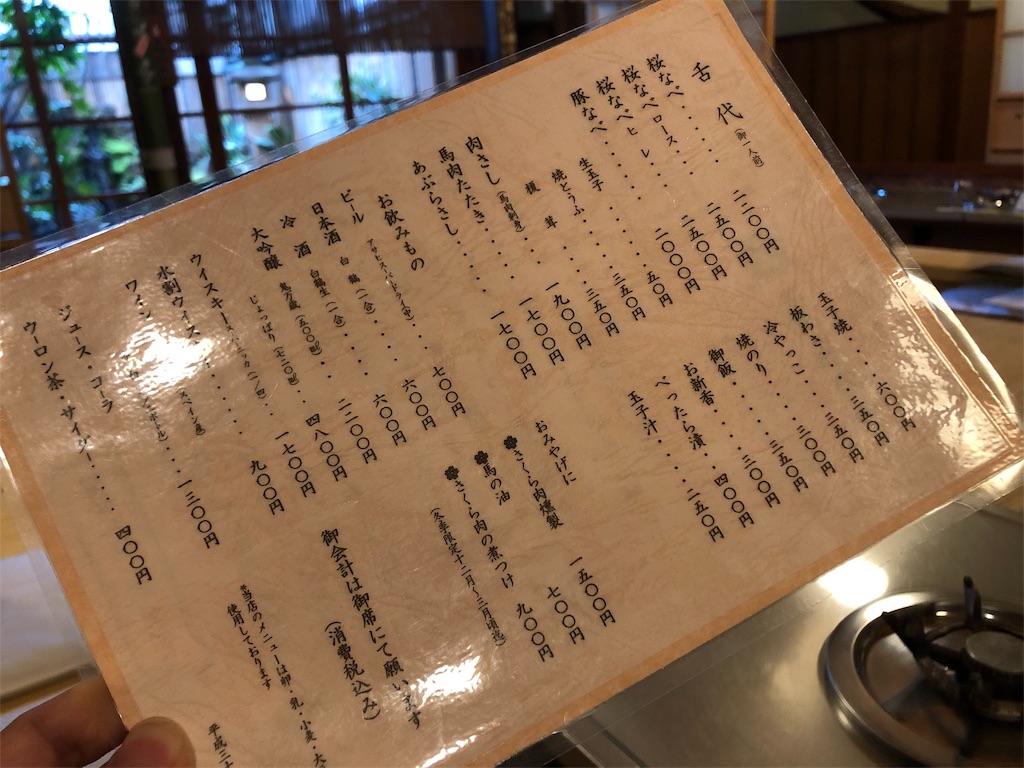 舌代(御一人前)
桜なべ・・・・・・二二〇〇円
桜なべロース・・・・二五〇〇円
桜なべヒレ・・・・二五〇〇円
豚なべ・・・・・・二〇〇〇円
生玉子・・・・・・五〇円
焼とうふ・・・・・二五〇円
榎茸・・・・・三五〇円
肉さし(馬肉刺身)・・・一九〇〇円
馬肉たたき・・・・一七〇〇円
あぶらさし・・・・一七〇〇円
玉子焼・・・・六〇〇円
板わさ・・・・三五〇円
冷やっこ・・・三五〇円
焼のり・・・・三〇〇円
御飯・・・・・二五〇円
お新香・・・・三〇〇円
べったら漬・・四〇〇円
玉子汁・・・・二五〇円
お飲みもの
ビール アサヒスーパードライ(中)・・七〇〇円
日本酒 白鶴(一合)・・・・六〇〇円
冷酒 白鶴生(一合)・・・六〇〇円
(五〇〇ml)・・・二二〇〇円
大吟醸 じょっぱり(七二〇ml)・・四八〇〇円
ウイスキー 一七〇〇円
水割ウイス 九〇〇円
ワイン 一三〇〇円
ジュース・コーラ
ウーロン茶・サイダー・・・・・四〇〇円
おみやげに
さくら肉燻製 一五〇〇円
馬の油 七〇〇円
さくら肉の煮つけ 九〇〇円
(冬季限定十二月〜三月頃迄)
御会計は御席にて願います
(消費税込み)
当店のメニューは卵・乳・小麦・大
使用しております
平成二十